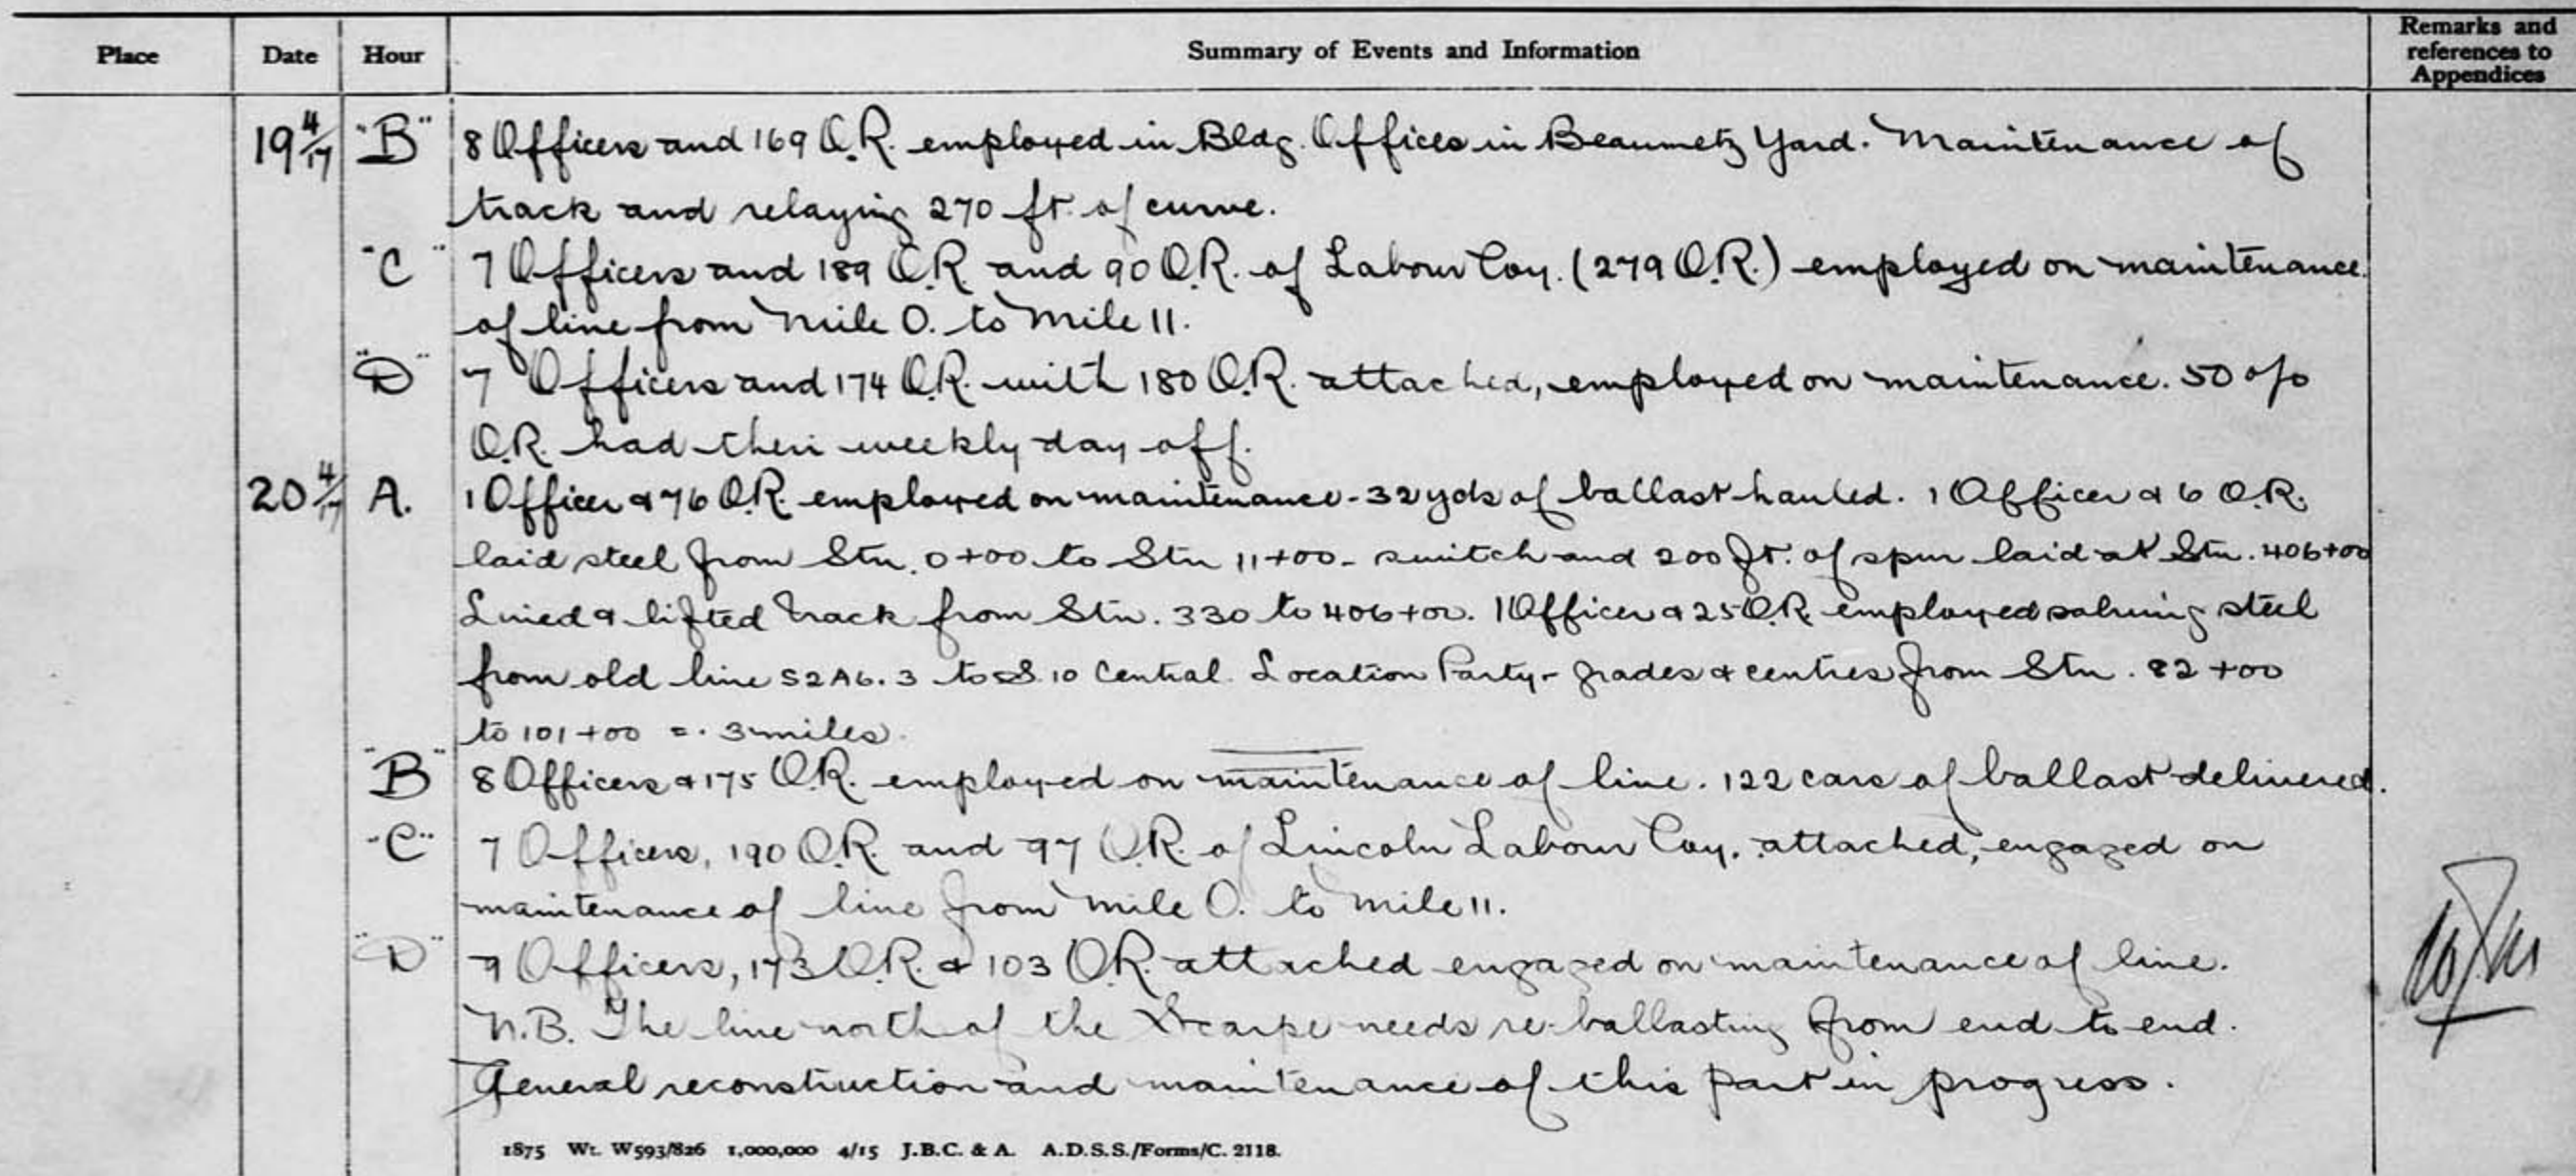 Place Date Hour Summary of Events and Information Remarks and references to Appendices
19 4/17 "B" 8 Officers and 169 O.R. employed in Bldg. Offices in Beaumetz Yard. Maintenance of
track and relaying 270 ft. of curve.
"C" 7 Officers and 189 O.R. and 90 O.R. of Labour Coy. (279 O.R.) employed on maintenance
of line from Mile 0. to Mile 11.
"D" 7 Officers and 174 O.R. with 180 O.R. attached, employed on maintenance. 50 o/o
O.R. had their weekly day off.
20 4/17 A. 1 Officer & 76 O.R. employed on maintenance - 32 yds of ballast hauled. 1 Officer & 6 O.R.
laid steel from Stn. 0+00 to Stn 11+00 - switch and 200 ft. of spur laid at Stn. 406+00
Lined & lifted track from Stn. 330 to 406+00. 1 Officer & 25 O.R. employed salving steel
from old line S2A6.3 to S.10 Central. Location Party - grades & centres from Stn. 82+00
to 101+00 = .3 miles.
"B" 8 Officers & 175 O.R. employed on maintenance of line. 122 cars of ballast delivered.
"C" 7 Officers, 190 O.R. and 97 O.R. of Lincoln Labour Coy. attached, engaged on
maintenance of line from Mile 0. to Mile 11.
"D" 7 Officers, 173 O.R. & 103 O.R. attached engaged on maintenance of line.
N.B. The line north of the Scarpe needs re-ballasting from end to end.
General reconstruction and maintenance of this part in progress.
1875 Wt. W593/826 1,000,000 4/15 J.B.C. & A. A.D.S.S./Forms/C. 2118.